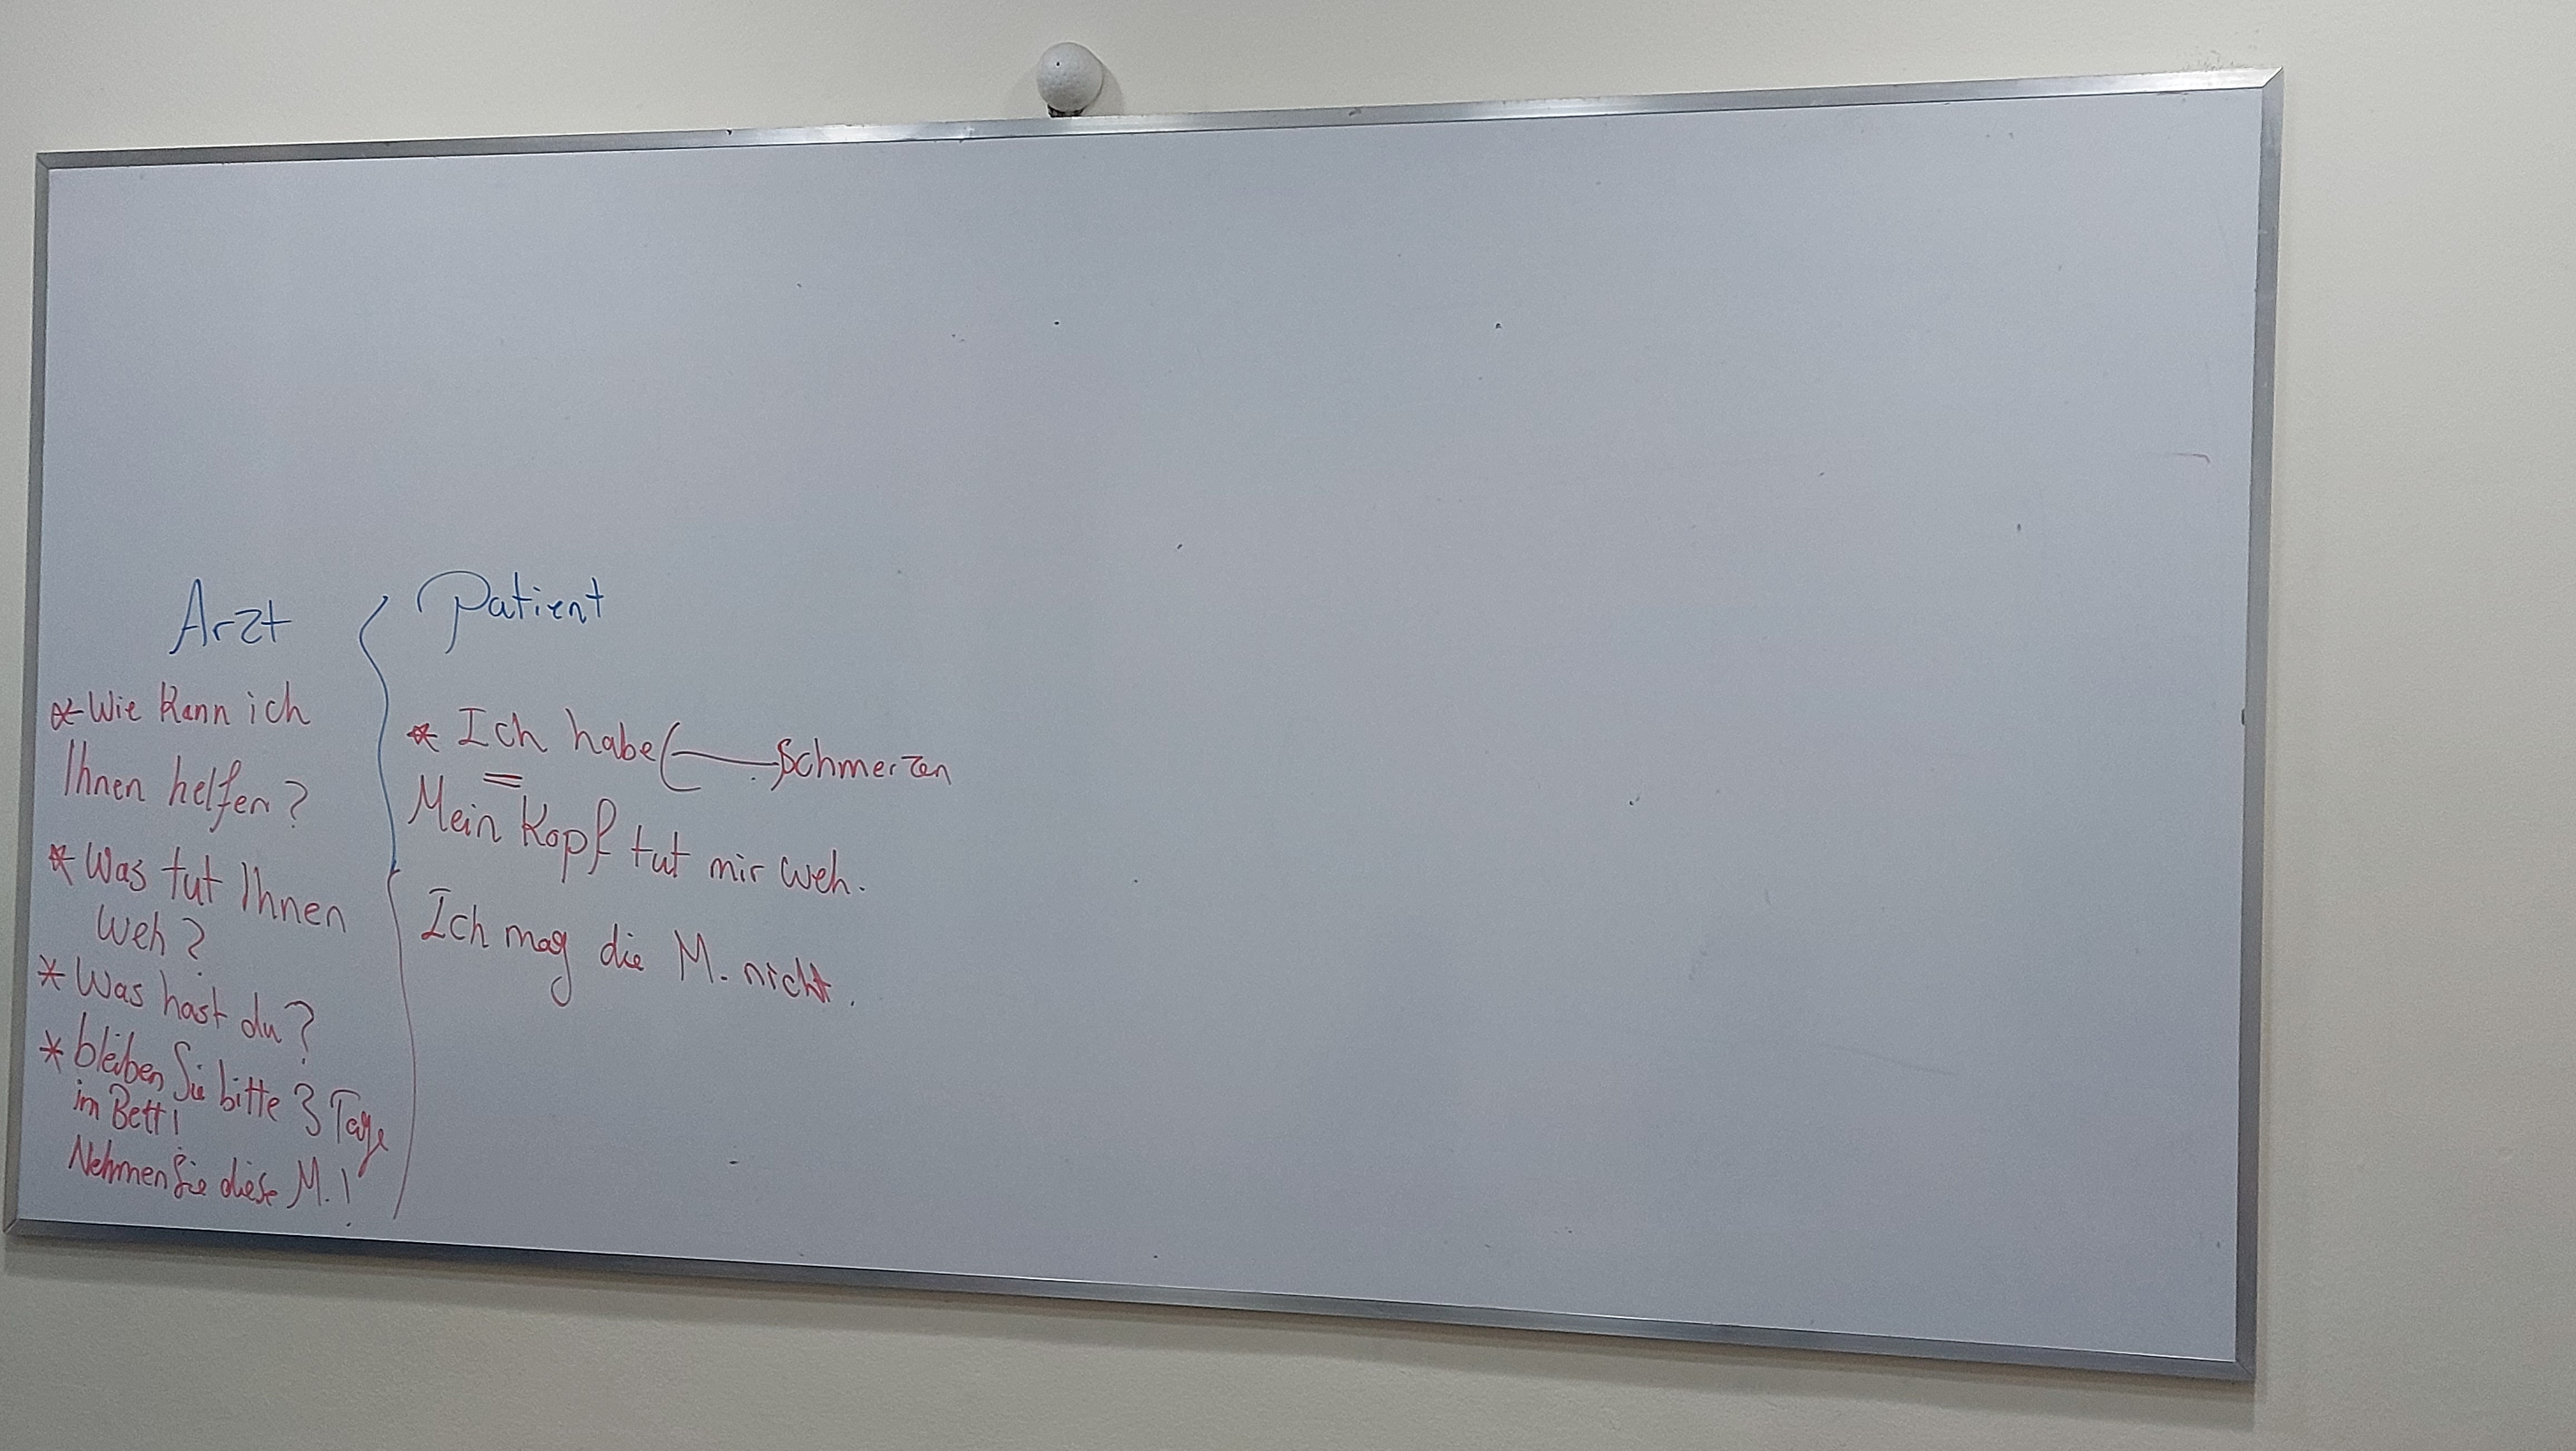 Arzt
* Wie kann ich
Ihnen helfen?
* Was tut Ihnen
weh?
* Was hast du?
* bleiben Sie bitte 3 Tage
im Bett!
Nehmen Sie diese M.!
Patient
* Ich habe (——) Schmerzen
=
Mein Kopf tut mir weh.
Ich mag die M. nicht.